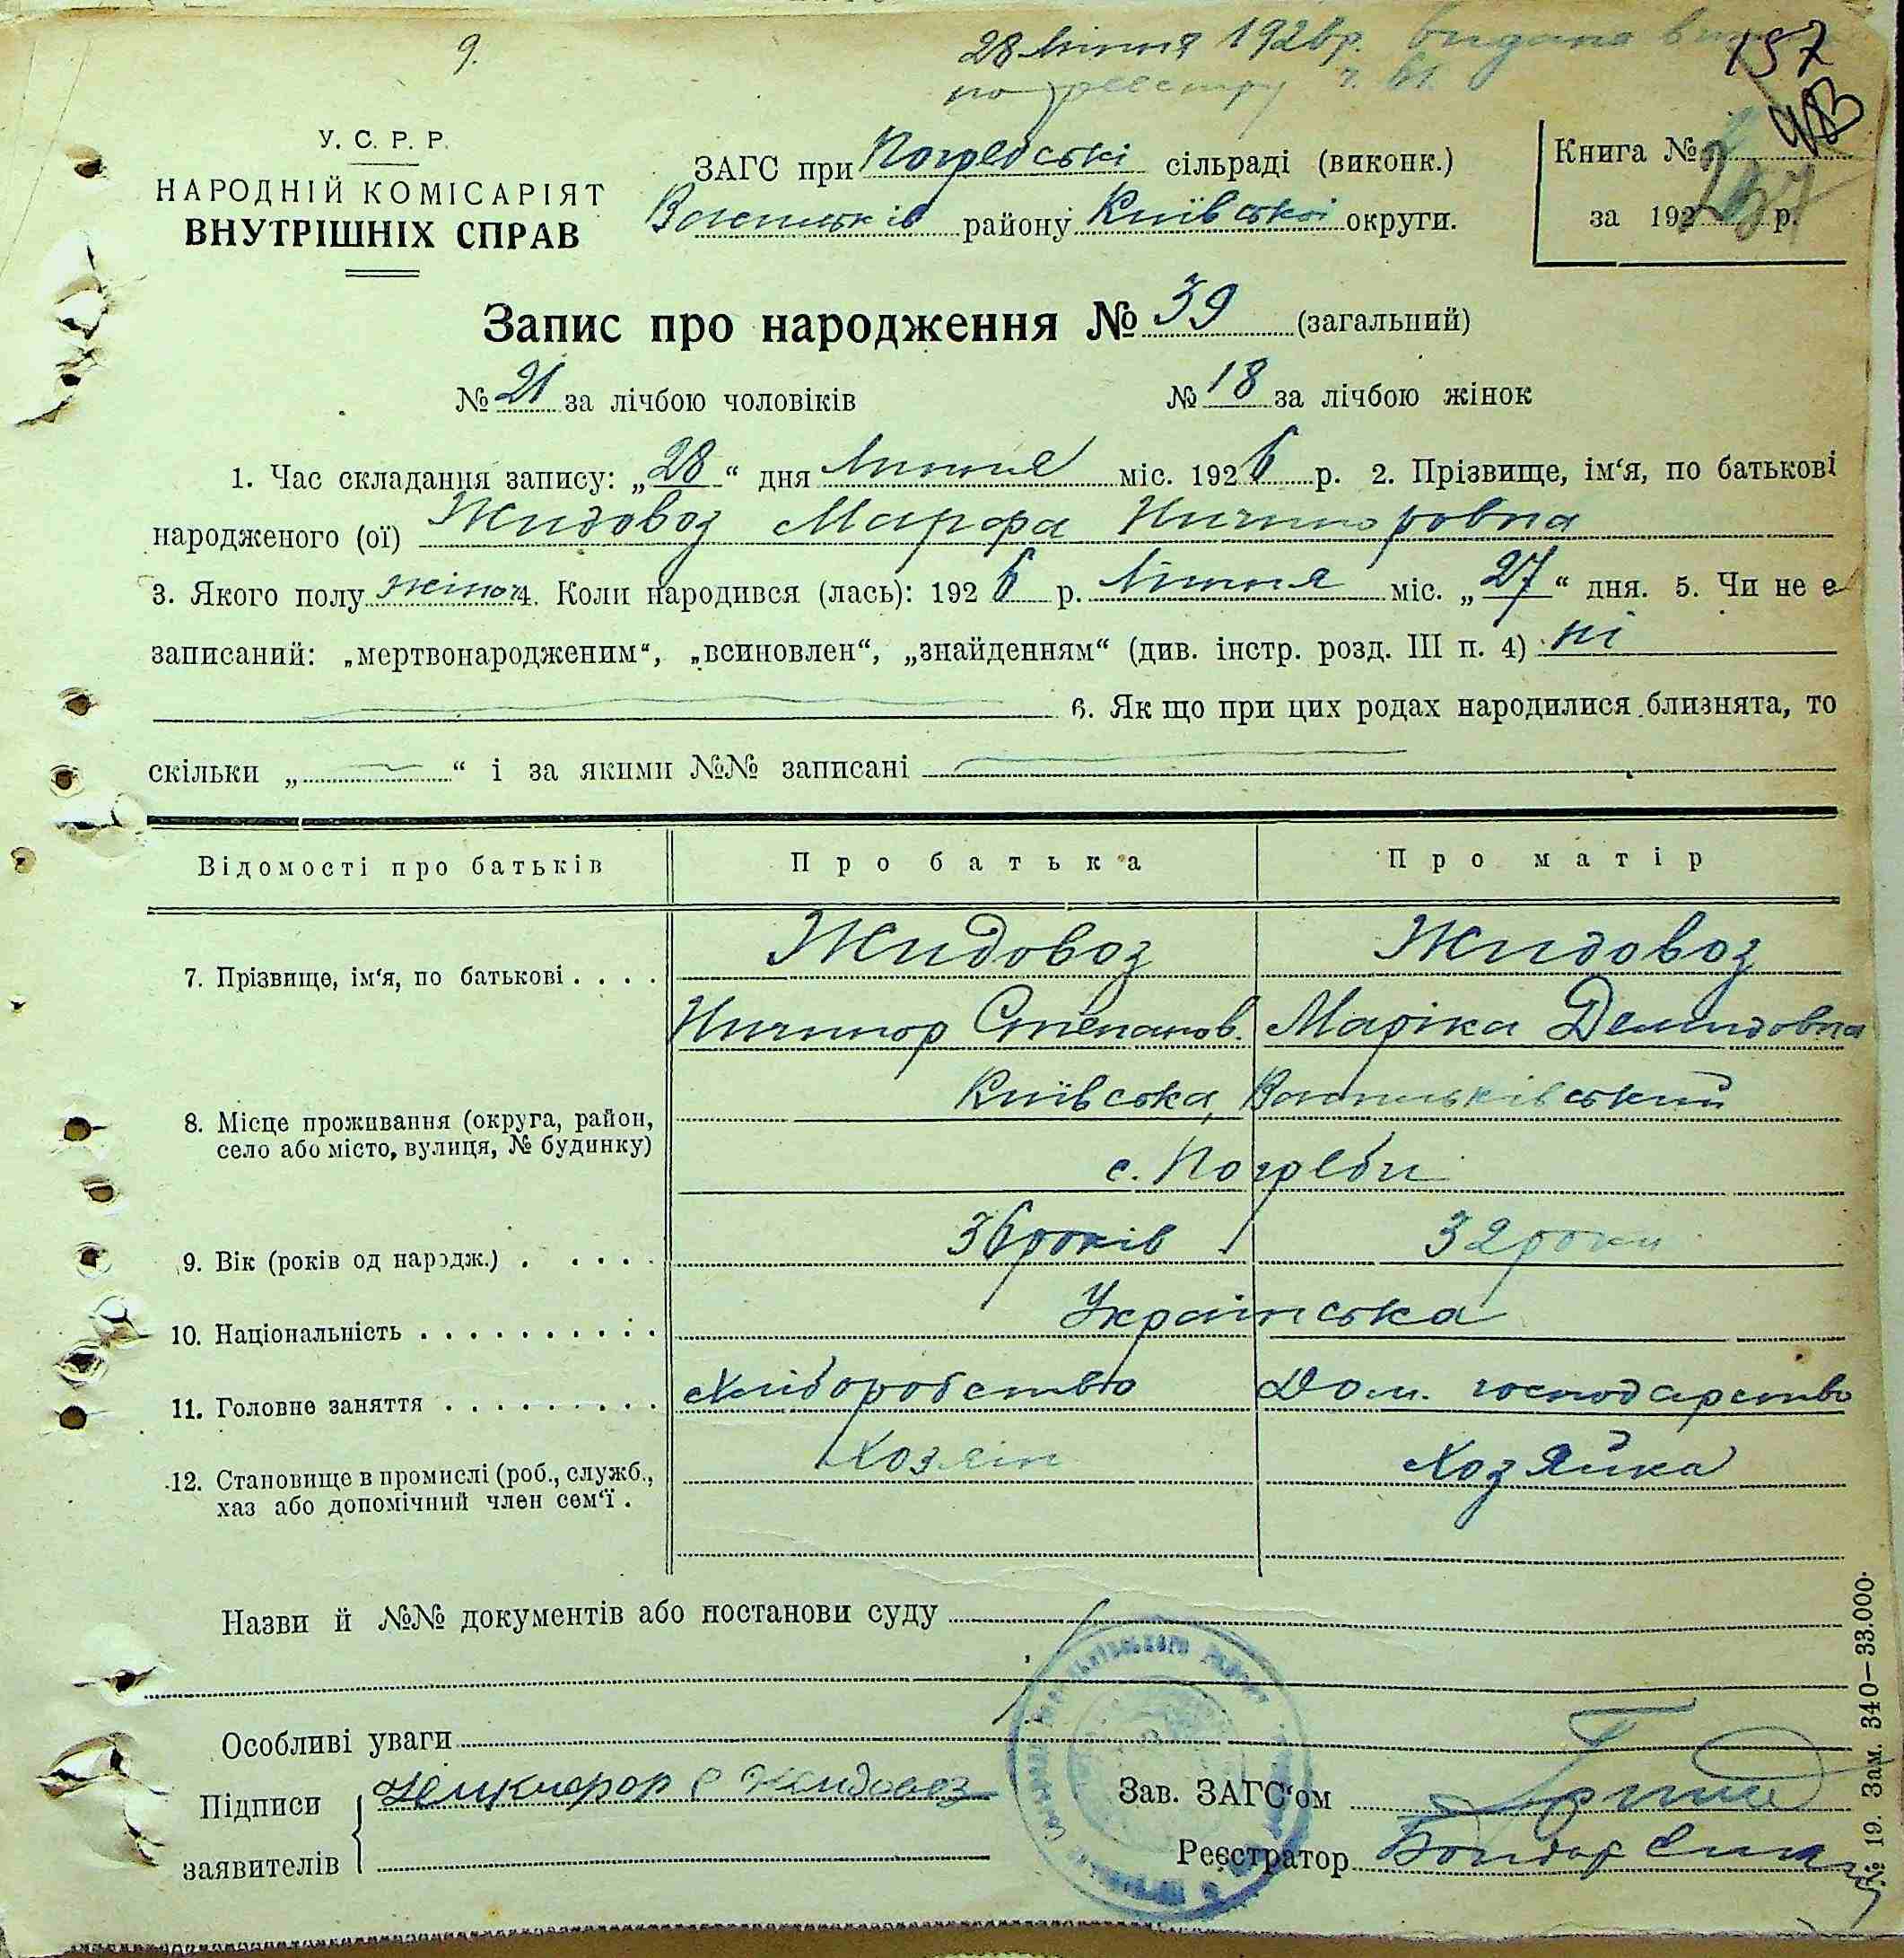 9.
28 Липня 1926р. видана
по реестру
157
У. С. Р. Р.
НАРОДНІЙ КОМІСАРІЯТ
ВНУТРІШНІХ СПРАВ
ЗАГС при Погребській сільраді (виконк.)
Васильків району Київської округи.
Книга №
за 192 р.
Запис про народження № 39 (загальний)
№ 21 за лічбою чоловіків № 18 за лічбою жінок
1. Час складання запису: „28“ дня Липня міс. 1926 р. 2. Прізвище, ім‘я, по батькові
народженого (ої) Жидовоз Марфа Ничипоровна
3. Якого полу жіноч 4. Коли народився (лась): 1926 р. Липня міс. „27“ дня. 5. Чи не є
записаний: „мертвонародженим“, „всиновлен“, „знайденням“ (див. інстр. розд. III п. 4) ні
6. Як що при цих родах народилися близнята, то
скільки „ “ і за якими №№ записані
Відомості про батьків Про батька Про матір
7. Прізвище, ім‘я, по батькові . . . . Жидовоз Жидовоз
Ничипор Степанов. Маріка Демидовна
8. Місце проживання (округа, район, село або місто, вулиця, № будинку) Київська, Васильківський
с. Погреби
9. Вік (років од народж.) . . . . . 36 років 32 роки
10. Національність . . . . . . . . . . . Українська
11. Головне заняття . . . . . . . . . Хліборобство Дом. господарство
12. Становище в промислі (роб., служб., хаз або допомічний член сем‘ї . Хозяін Хозяйка
Назви й №№ документів або постанови суду
Особливі уваги
Підписи
заявителів
Жидовоз
Зав. ЗАГС‘ом
Реєстратор Бондар
№ 19. Зам. 340—33.000.